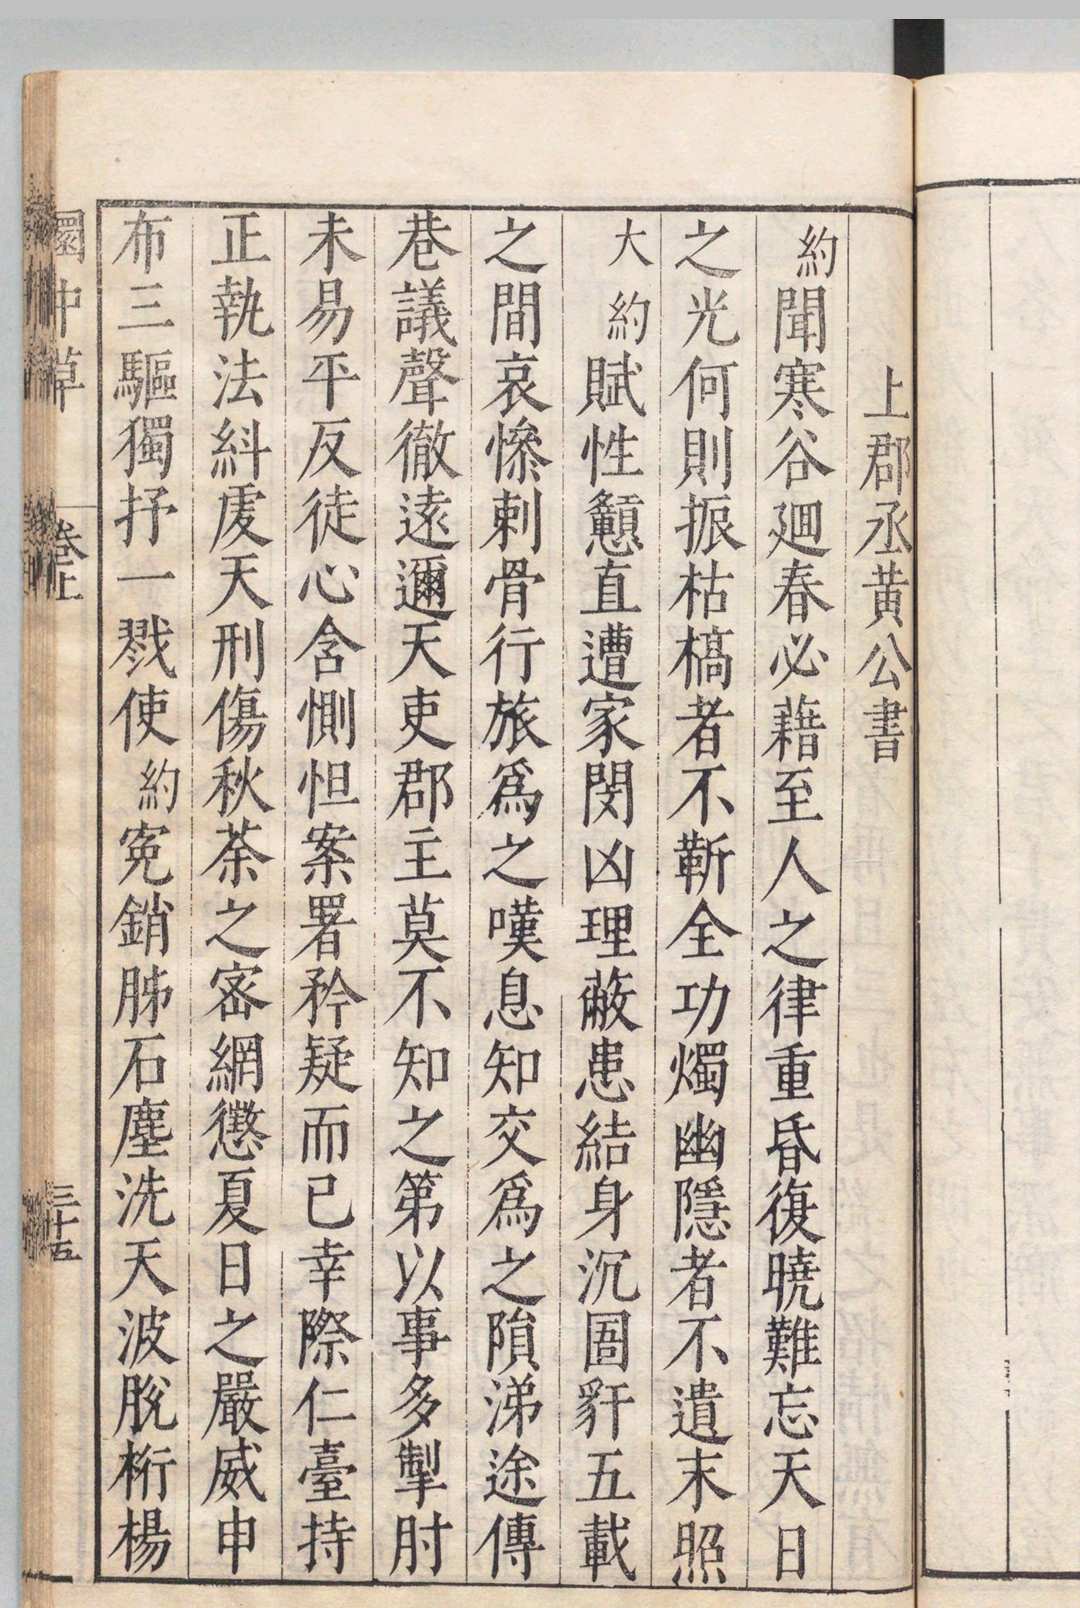 上郡丞黃公書
約聞寒谷廻春必藉至人之律重昏復曉難忘天日
之光何則振枯槁者不靳全功燭幽隱者不遺末照
大約賦性顢直遭家閔凶理蔽患結身沉圄豻五載
之間哀慘刺骨行旅爲之嘆息知交爲之隕涕途傳
巷議聲徹遠邇天吏郡主莫不知之第以事多掣肘
未易平反徒心含惻怛案署矜疑而已幸際仁臺持
正執法糾虔天刑傷秋荼之密網懲夏日之嚴威申
布三驅獨抒一戮使約寃銷肺石塵洗天波脫桁楊
園中草
卷上
三十五